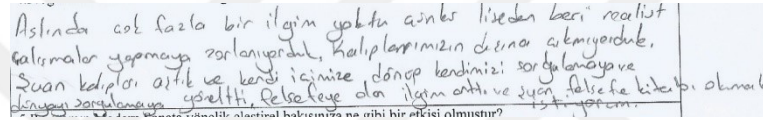 Aslında çok fazla bir ilgim yoktu çünkü liseden beri realist
çalışmalar yapmaya zorlanıyorduk, kalıplarımızın dışına çıkmıyorduk.
Şuan kalıpları aştık ve kendi içimize, dönüp kendimizi sorgulamaya ve
dünyayı sorgulamaya yöneltti, felsefeye olan ilgim arttı ve şuan felsefe kitabı okumak
istiyorum.
yönelik eleştirel bakışınıza ne gibi bir etkisi olmuştur?